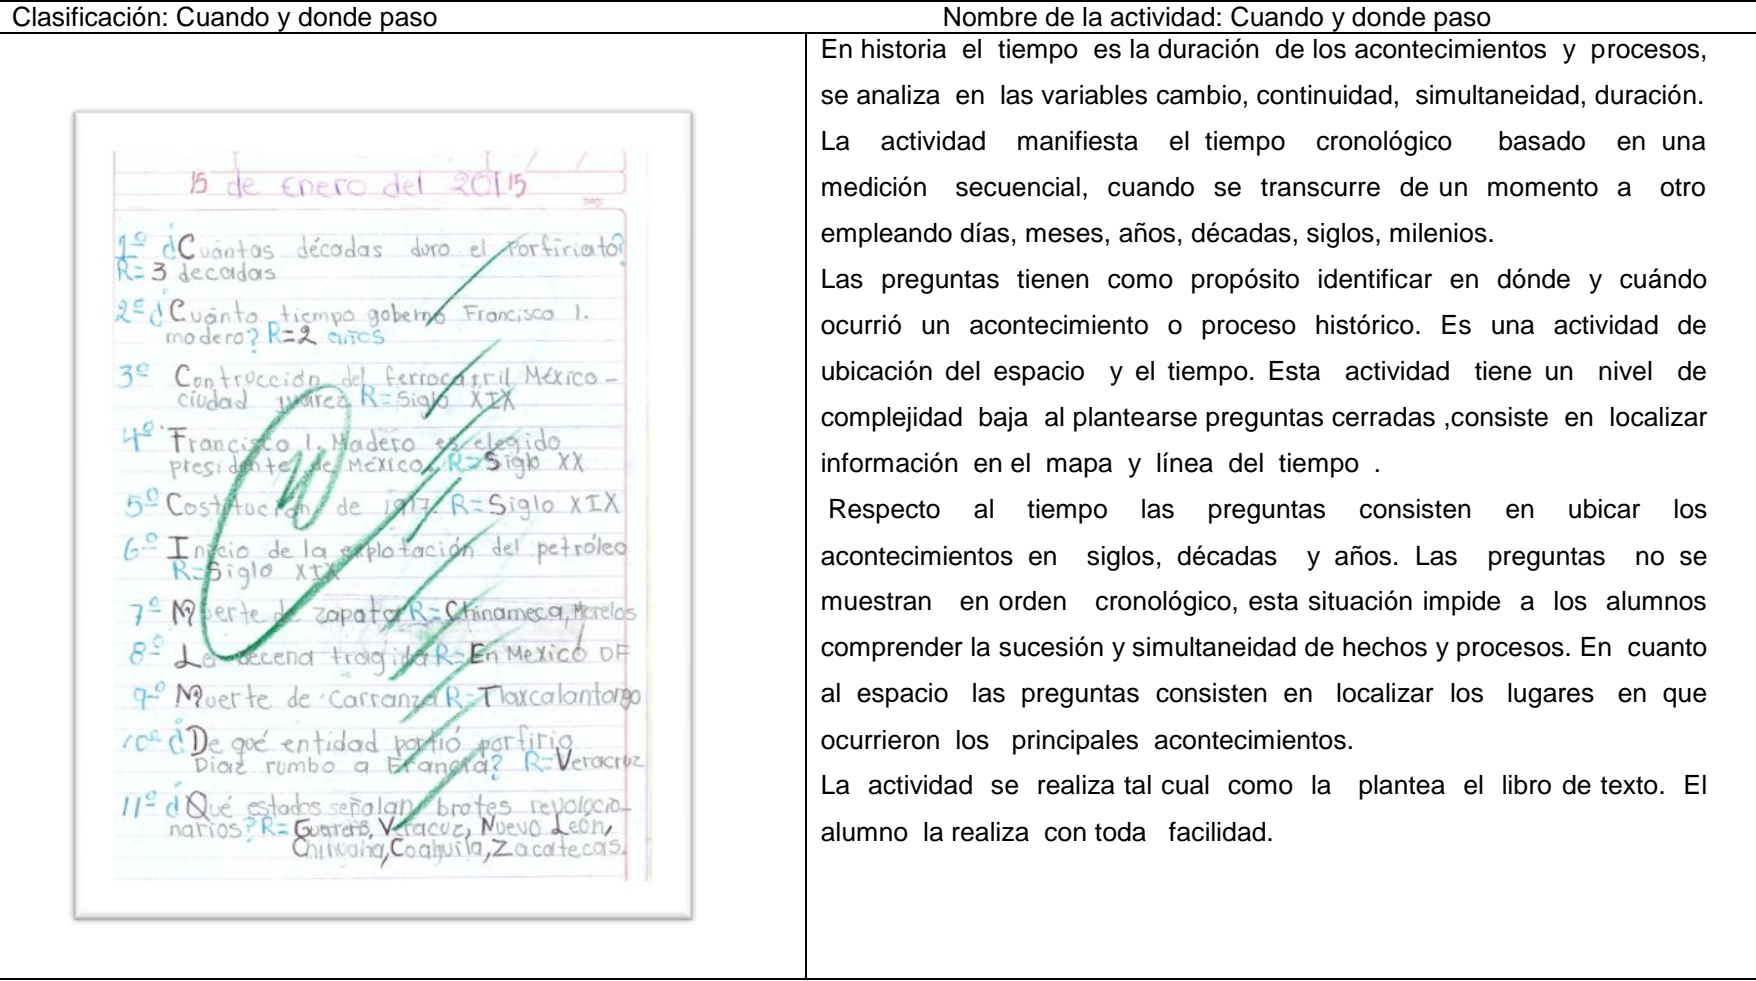 Clasificación: Cuando y donde paso
Nombre de la actividad: Cuando y donde paso
15 de Enero del 2015
1º ¿Cuántas décadas duro el Porfiriato?
R= 3 decadas
2º ¿Cuánto tiempo gobernó Francisco I.
madero? R=2 años
3º Contrucción del ferrocarril México-
ciudad juárez R= Siglo XIX
4º Francisco I. Madero es elegido
presidente de México. R= Siglo XX
5º Costitución de 1917. R= Siglo XIX
6º Inicio de la explotación del petróleo
R= Siglo XIX
7º Muerte de zapata R= Chinameca, Morelos
8º La decena tragida R= En Mexicó DF
9º Muerte de Carranza R= Tlaxcalantongo
10º ¿De qué entidad partió porfirio
Diaz rumbo a Francia? R= Veracruz
11º ¿Qué estados señalan brotes revolucio-
narios? R= Guerrero, Veracuz, Nuevo León,
Chihuaha, Coahuila, Zacatecas.
En historia el tiempo es la duración de los acontecimientos y procesos,
se analiza en las variables cambio, continuidad, simultaneidad, duración.
La actividad manifiesta el tiempo cronológico basado en una
medición secuencial, cuando se transcurre de un momento a otro
empleando días, meses, años, décadas, siglos, milenios.
Las preguntas tienen como propósito identificar en dónde y cuándo
ocurrió un acontecimiento o proceso histórico. Es una actividad de
ubicación del espacio y el tiempo. Esta actividad tiene un nivel de
complejidad baja al plantearse preguntas cerradas ,consiste en localizar
información en el mapa y línea del tiempo .
Respecto al tiempo las preguntas consisten en ubicar los
acontecimientos en siglos, décadas y años. Las preguntas no se
muestran en orden cronológico, esta situación impide a los alumnos
comprender la sucesión y simultaneidad de hechos y procesos. En cuanto
al espacio las preguntas consisten en localizar los lugares en que
ocurrieron los principales acontecimientos.
La actividad se realiza tal cual como la plantea el libro de texto. El
alumno la realiza con toda facilidad.